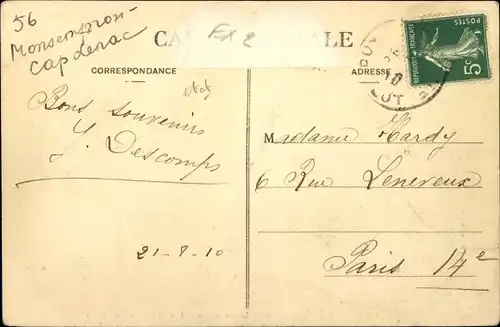 56
Monsempron-
Cap Lerac
CA LE
EX 2
CORRESPONDANCE
ADRESSE
RÉPUBLIQUE FRANÇAISE
POSTES
5c
Bons souvenirs
J. Descomps
21-8-10
Madame Hardy
6 Rue Leneveux
Paris 14e